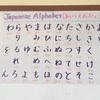 Japanese Alphabet
わらやまはなたさかあ
りみひにちしきい
をるゆむふぬつすくう
れめへねてせけえ
んろよもほのとそこお